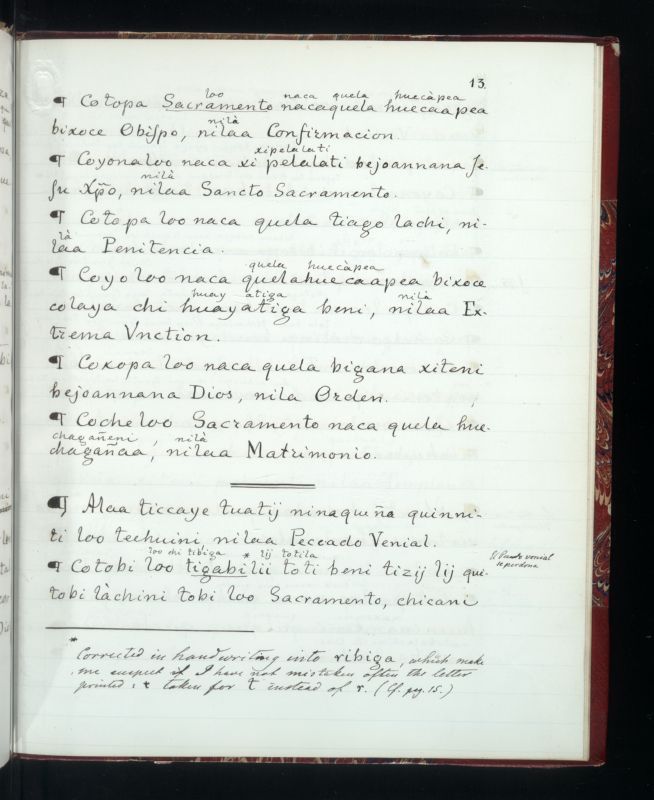 13.
loo naca quela huecàpea
¶ Cotopa Sacramento nacaquela huecaapea
nilà
bixoce Obispo, nilaa Confirmacion.
xipelalati
¶ Coyonaloo naca xi pelalati bejoannana Je-
nilà
ſu Xp̃o, nilaa Sancto Sacramento.
¶ Cotopa loo naca quela tiago lachi, ni-
là
laa Penitencia.
quela huecàpea
¶ Coyo loo naca quelahuecaapea bixoce
huay atiga nilà
colaya chi huayatiga beni, nilaa Ex-
trema Vnction.
¶ Coxopa loo naca quela bigana xiteni
bejoannana Dios, nila Orden.
¶ Coche loo Sacramento naca quela hue-
chagañeni, nilà
chagañaa, nilaa Matrimonio.
¶ Alaa ticcaye tuatij ninaqueña quinni-
ti loo techuini nilaa Peccado Venial.
loo chi tibiga * lij totila
¶ Cotobi loo tigabilii toti beni tizij lij qui-
El Pecado venial
se perdona
tobi làchini tobi loo Sacramento, chicani
* Corrected in handwriting into ribiga, which make
me suspect if I have not mistaken often the letter
printed: τ taken for t instead of r. (Cf. pg. 15.)